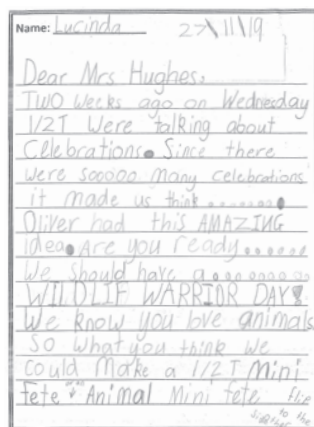 Name: Lucinda 27\11\19
Dear Mrs Hughes,
TWO weeks ago on Wednesday
1/2T were talking about
Celebrations. Since there
were sooooo many celebrations
it made us think........
Oliver had this AMAZING
idea. Are you ready......
We should have a.........
WILDLIF WARRIOR DAY!
We know you love animals
So what you think we
could make a 1/2T Mini
fete Animal Mini fete flip
to the